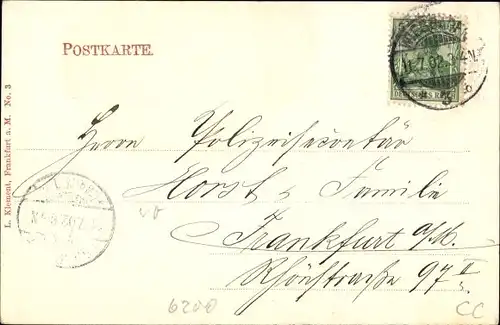 POSTKARTE.
DEUTSCHES REICH
11.7.02.
L. Klement, Frankfurt a. M. No. 3
Herrn Polizeisecretär
Horst u Familie
Frankfurt a/M.
Rhönstraße 97 II
6200
CC